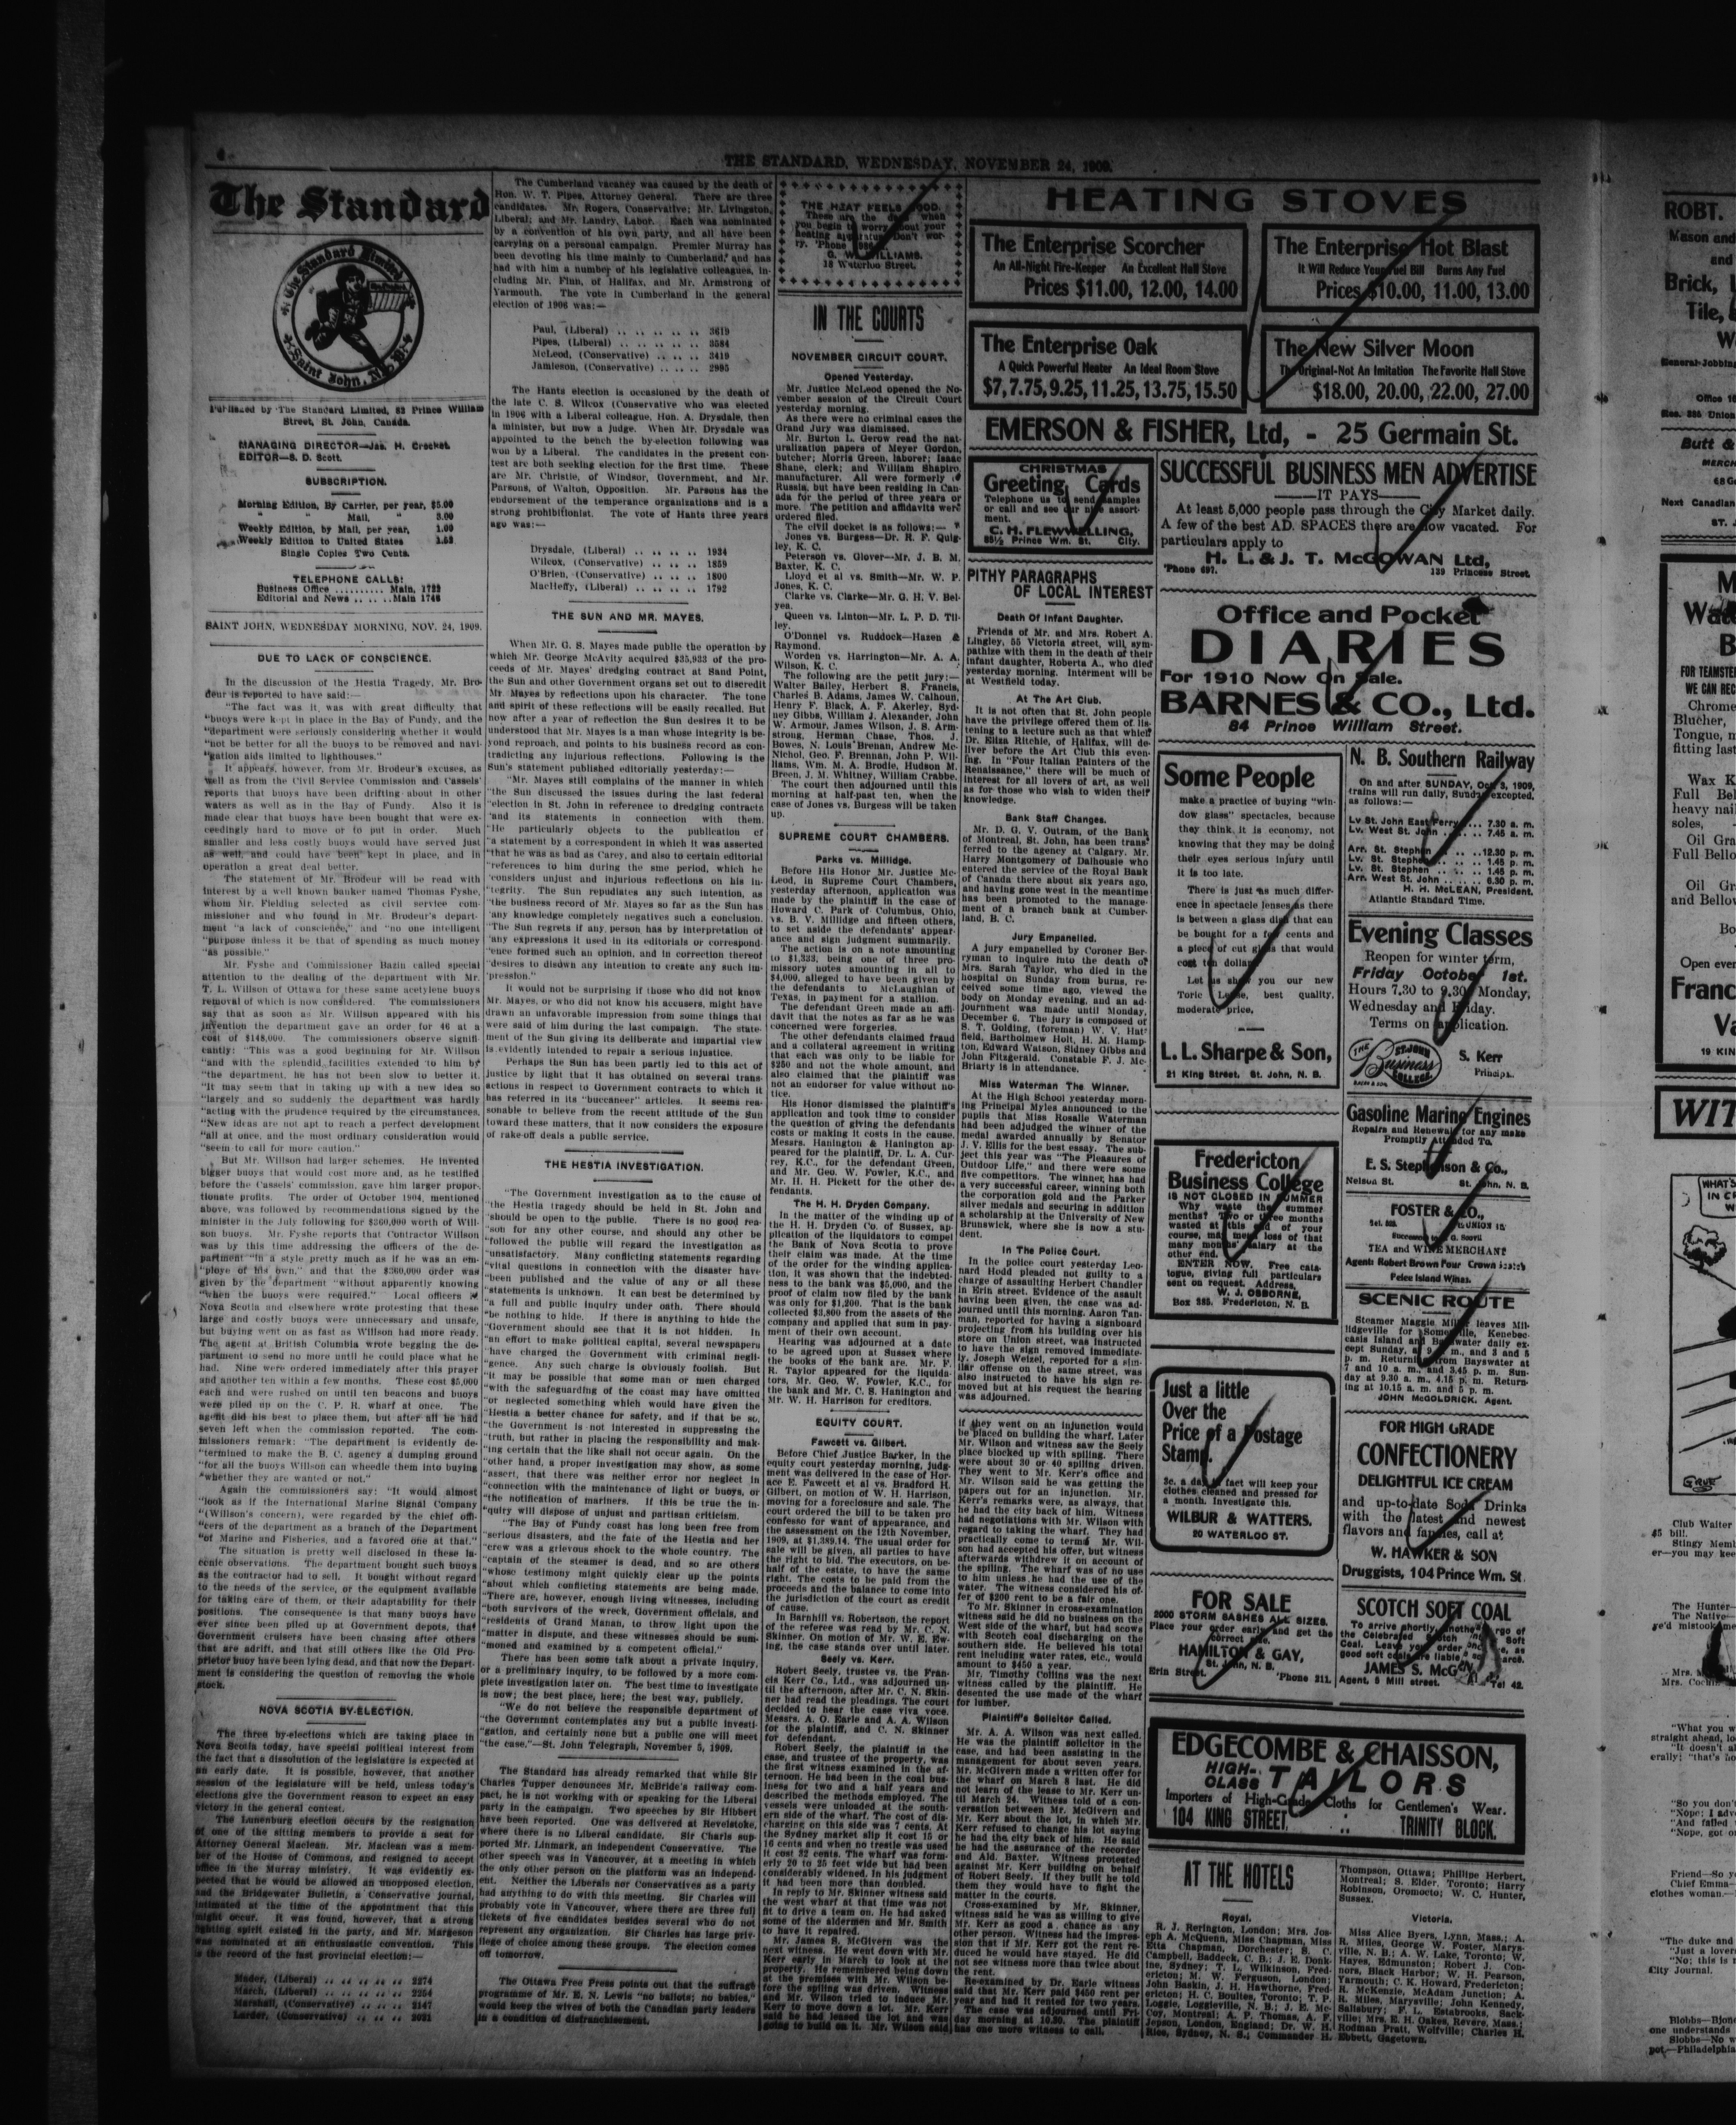 THE STANDARD, WEDNESDAY, NOVEMBER 24, 1909.
The Standard
The Standard Limited
Saint John, N.B.
Published by The Standard Limited, 82 Prince William
Street, St. John, Canada.
MANAGING DIRECTOR—Jas. H. Crocket.
EDITOR—S. D. Scott.
SUBSCRIPTION.
Morning Edition, By Carrier, per year, $5.00
" " Mail, " 3.00
Weekly Edition, by Mail, per year, 1.00
Weekly Edition to United States
Single Copies Two Cents.
TELEPHONE CALLS:
Business Office .......... Main, 1722
Editorial and News ...... Main 1746
SAINT JOHN, WEDNESDAY MORNING, NOV. 24, 1909.
DUE TO LACK OF CONSCIENCE.
In the discussion of the Hestia Tragedy, Mr. Bro-
deur is reported to have said:—
"The fact was it was with great difficulty that
"buoys were kept in place in the Bay of Fundy, and the
"department were seriously considering whether it would
"not be better for all the buoys to be removed and navi-
"gation aids limited to lighthouses."
It appears, however, from Mr. Brodeur's excuses, as
well as from the Civil Service Commission and Cassels'
reports that buoys have been drifting about in other
waters as well as in the Bay of Fundy. Also it is
made clear that buoys have been bought that were ex-
ceedingly hard to move or to put in order. Much
smaller and less costly buoys would have served just
as well, and could have been kept in place, and in
operation a great deal better.
The statement of Mr. Brodeur will be read with
interest by a well known banker named Thomas Fyshe,
whom Mr. Fielding selected as civil service com-
missioner and who found in Mr. Brodeur's depart-
ment "a lack of conscience," and "no one intelligent
"purpose unless it be that of spending as much money
"as possible."
Mr. Fyshe and Commissioner Bazin called special
attention to the dealing of the department with Mr.
T. L. Willson of Ottawa for these same acetylene buoys
removal of which is now considered. The commissioners
say that as soon as Mr. Willson appeared with his
invention the department gave an order for 46 at a
cost of $148,000. The commissioners observe signifi-
cantly: "This was a good beginning for Mr. Willson
"and with the splendid facilities extended to him by
"the department, he has not been slow to better it.
"It may seem that in taking up with a new idea so
"largely and so suddenly the department was hardly
"acting with the prudence required by the circumstances.
"New ideas are not apt to reach a perfect development
"all at once, and the most ordinary consideration would
"seem to call for more caution."
But Mr. Willson had larger schemes. He invented
bigger buoys that would cost more and, as he testified
before the Cassels' commission, gave him larger propor-
tionate profits. The order of October 1904, mentioned
above, was followed by recommendations signed by the
minister in the July following for $360,000 worth of Will-
son buoys. Mr. Fyshe reports that Contractor Willson
was by this time addressing the officers of the de-
partment "in a style pretty much as if he was an em-
"ploye of his own," and that the $360,000 order was
given by the department "without apparently knowing
"when the buoys were required." Local officers in
Nova Scotia and elsewhere wrote protesting that these
large and costly buoys were unnecessary and unsafe,
but buying went on as fast as Willson had more ready.
The agent at British Columbia wrote begging the de-
partment to send no more until he could place what he
had. Nine were ordered immediately after this prayer
and another ten within a few months. These cost $5,000
each and were rushed on until ten beacons and buoys
were piled up on the C. P. R. wharf at once. The
agent did his best to place them, but after all he had
seven left when the commission reported. The com-
missioners remark: "The department is evidently de-
"termined to make the B. C. agency a dumping ground
"for all the buoys Willson can wheedle them into buying
"whether they are wanted or not."
Again the commissioners say: "It would almost
"look as if the International Marine Signal Company
"(Willson's concern), were regarded by the chief offi-
"cers of the department as a branch of the Department
"of Marine and Fisheries, and a favored one at that."
The situation is pretty well disclosed in these la-
conic observations. The department bought such buoys
as the contractor had to sell. It bought without regard
to the needs of the service, or the equipment available
for taking care of them, or their adaptability for their
positions. The consequence is that many buoys have
ever since been piled up at Government depots, that
Government cruisers have been chasing after others
that are adrift, and that still others like the Old Pro-
prietor buoy have been lying dead, and that now the Depart-
ment is considering the question of removing the whole
stock.
NOVA SCOTIA BY-ELECTION.
The three by-elections which are taking place in
Nova Scotia today, have special political interest from
the fact that a dissolution of the legislature is expected at
an early date. It is possible, however, that another
session of the legislature will be held, unless today's
elections give the Government reason to expect an easy
victory in the general contest.
The Lunenburg election occurs by the resignation
of one of the sitting members to provide a seat for
Attorney General Maclean. Mr. Maclean was a mem-
ber of the House of Commons, and resigned to accept
office in the Murray ministry. It was evidently ex-
pected that he would be allowed an unopposed election,
and the Bridgewater Bulletin, a Conservative journal,
intimated at the time of the appointment that this
might occur. It was found, however, that a strong
fighting spirit existed in the party, and Mr. Margeson
was nominated at an enthusiastic convention. This
is the record of the last provincial election:—
Mader, (Liberal) .. .. .. .. .. 2274
March, (Liberal) .. .. .. .. .. 2254
Marshall, (Conservative) .. .. .. 2147
Larder, (Conservative) .. .. .. 2021
The Cumberland vacancy was caused by the death of
Hon. W. T. Pipes, Attorney General. There are three
candidates. Mr. Rogers, Conservative; Mr. Livingston,
Liberal; and Mr. Landry, Labor. Each was nominated
by a convention of his own party, and all have been
carrying on a personal campaign. Premier Murray has
been devoting his time mainly to Cumberland, and has
had with him a number of his legislative colleagues, in-
cluding Mr. Finn, of Halifax, and Mr. Armstrong of
Yarmouth. The vote in Cumberland in the general
election of 1906 was:—
Paul, (Liberal) .. .. .. .. .. 3619
Pipes, (Liberal) .. .. .. .. .. 3584
McLeod, (Conservative) .. .. .. 3419
Jamieson, (Conservative) .. .. .. 2995
The Hants election is occasioned by the death of
the late C. S. Wilcox (Conservative who was elected
in 1906 with a Liberal colleague, Hon. A. Drysdale, then
a minister, but now a judge. When Mr. Drysdale was
appointed to the bench the by-election following was
won by a Liberal. The candidates in the present con-
test are both seeking election for the first time. These
are Mr. Christie, of Windsor, Government, and Mr.
Parsons, of Walton, Opposition. Mr. Parsons has the
endorsement of the temperance organizations and is a
strong prohibitionist. The vote of Hants three years
ago was:—
Drysdale, (Liberal) .. .. .. .. 1934
Wilcox, (Conservative) .. .. .. 1859
O'Brien, (Conservative) .. .. .. 1800
MacHeffy, (Liberal) .. .. .. .. 1792
THE SUN AND MR. MAYES.
When Mr. G. S. Mayes made public the operation by
which Mr. George McAvity acquired $35,933 of the pro-
ceeds of Mr. Mayes' dredging contract at Sand Point,
the Sun and other Government organs set out to discredit
Mr Mayes by reflections upon his character. The tone
and spirit of these reflections will be easily recalled. But
now after a year of reflection the Sun desires it to be
understood that Mr. Mayes is a man whose integrity is be-
yond reproach, and points to his business record as con-
tradicting any injurious reflections. Following is the
Sun's statement published editorially yesterday:—
"Mr. Mayes still complains of the manner in which
"the Sun discussed the issues during the last federal
"election in St. John in reference to dredging contracts
"and its statements in connection with them.
"He particularly objects to the publication of
"a statement by a correspondent in which it was asserted
"that he was as bad as Carey, and also to certain editorial
"references to him during the sme period, which he
"considers unjust and injurious reflections on his in-
"tegrity. The Sun repudiates any such intention, as
"the business record of Mr. Mayes so far as the Sun has
"any knowledge completely negatives such a conclusion.
"The Sun regrets if any person has by interpretation of
"any expressions it used in its editorials or correspond-
"ence formed such an opinion, and in correction thereof
"desires to disown any intention to create any such im-
"pression."
It would not be surprising if those who did not know
Mr. Mayes, or who did not know his accusers, might have
drawn an unfavorable impression from some things that
were said of him during the last campaign. The state-
ment of the Sun giving its deliberate and impartial view
is evidently intended to repair a serious injustice.
Perhaps the Sun has been partly led to this act of
justice by light that it has obtained on several trans-
actions in respect to Government contracts to which it
has referred in its "buccaneer" articles. It seems rea-
sonable to believe from the recent attitude of the Sun
toward these matters, that it now considers the exposure
of rake-off deals a public service.
THE HESTIA INVESTIGATION.
"The Government investigation as to the cause of
"the Hestia tragedy should be held in St. John and
"should be open to the public. There is no good rea-
"son for any other course, and should any other be
"followed the public will regard the investigation as
"unsatisfactory. Many conflicting statements regarding
"vital questions in connection with the disaster have
"been published and the value of any or all these
"statements is unknown. It can best be determined by
"a full and public inquiry under oath. There should
"be nothing to hide. If there is anything to hide the
"Government should see that it is not hidden. In
"an effort to make political capital, several newspapers
"have charged the Government with criminal negli-
"gence. Any such charge is obviously foolish. But
"it may be possible that some man or men charged
"with the safeguarding of the coast may have omitted
"or neglected something which would have given the
"Hestia a better chance for safety, and if that be so,
"the Government is not interested in suppressing the
"truth, but rather in placing the responsibility and mak-
"ing certain that the like shall not occur again. On the
"other hand, a proper investigation may show, as some
"assert, that there was neither error nor neglect in
"connection with the maintenance of light or buoys, or
"the notification of mariners. If this be true the in-
"quiry will dispose of unjust and partisan criticism.
"The Bay of Fundy coast has long been free from
"serious disasters, and the fate of the Hestia and her
"crew was a grievous shock to the whole country. The
"captain of the steamer is dead, and so are others
"whose testimony might quickly clear up the points
"about which conflicting statements are being made.
"There are, however, enough living witnesses, including
"both survivors of the wreck, Government officials, and
"residents of Grand Manan, to throw light upon the
"matter in dispute, and these witnesses should be sum-
"moned and examined by a competent official."
There has been some talk about a private inquiry,
or a preliminary inquiry, to be followed by a more com-
plete investigation later on. The best time to investigate
is now; the best place, here; the best way, publicly.
"We do not believe the responsible department of
"the Governmnt contemplates any but a public investi-
"gation, and certainly none but a public one will meet
"the case."—St. John Telegraph, November 5, 1909.
The Standard has already remarked that while Sir
Charles Tupper denounces Mr. McBride's railway com-
pact, he is not working with or speaking for the Liberal
party in the campaign. Two speeches by Sir Hibbert
have been reported. One was delivered at Revelstoke,
where there is no Liberal candidate. Sir Charls sup-
ported Mr. Linmark, an independent Conservative. The
other speech was in Vancouver, at a meeting in which
the only other person on the platform was an independ-
ent. Neither the Liberals nor Conservatives as a party
had anything to do with this meeting. Sir Charles will
probably vote in Vancouver, where there are three full
tickets of five candidates besides several who do not
represent any organization. Sir Charles has large priv-
ilege of choice among these groups. The election comes
off tomorrow.
The Ottawa Free Press points out that the suffrage
programme of Mr. E. N. Lewis "no ballots; no babies,"
would keep the wives of both the Canadian party leaders
in a condition of disfranchisement.
THE HEAT FEELS GOOD.
These are the days when
you begin to worry about your
heating apparatus. Don't wor-
ry. 'Phone
G. W. WILLIAMS.
18 Waterloo Street.
IN THE COURTS
NOVEMBER CIRCUIT COURT.
Opened Yesterday.
Mr. Justice McLeod opened the No-
vember session of the Circuit Court
yesterday morning.
As there were no criminal cases the
Grand Jury was dismissed.
Mr. Burton L. Gerow read the nat-
uralization papers of Meyer Gordon,
butcher; Morris Green, laborer; Isaac
Shane, clerk; and William Shapiro,
manufacturer. All were formerly of
Russia, but have been residing in Can-
ada for the period of three years or
more. The petition and affidavits were
ordered filed.
The civil docket is as follows:—
Jones vs. Burgess—Dr. R. F. Quig-
ley, K. C.
Peterson vs. Glover—Mr. J. B. M.
Baxter, K. C.
Lloyd et al vs. Smith—Mr. W. P.
Jones, K. C.
Clarke vs. Clarke—Mr. G. H. V. Bel-
yea.
Queen vs. Linton—Mr. L. P. D. Til-
ley.
O'Donnel vs. Ruddock—Hazen &
Raymond.
Worden vs. Harrington—Mr. A. A.
Wilson, K. C.
The following are the petit jury:—
Walter Bailey, Herbert S. Francis,
Charles B. Adams, James W. Calhoun,
Henry F. Black, A. F. Akerley, Syd-
ney Gibbs, William J. Alexander, John
W. Armour, James Wilson, J. S. Arm-
strong, Herman Chase, Thos. J.
Bowes, N. Louis Brenan, Andrew Mc-
Nichol, Geo. F. Brennan, John P. Wil-
liams, Wm. M. A. Brodie, Hudson M.
Breen, J. M. Whitney, William Crabbe.
The court then adjourned until this
morning at half-past ten, when the
case of Jones vs. Burgess will be taken
up.
SUPREME COURT CHAMBERS.
Parks vs. Millidge.
Before His Honor Mr. Justice Mc-
Leod, in Supreme Court Chambers,
yesterday afternoon, application was
made by the plaintiff in the case of
Howard C. Park of Columbus, Ohio,
vs. B. V. Millidge and fifteen others,
to set aside the defendants' appear-
ance and sign judgment summarily.
The action is on a note amounting
to $1,333, being one of three pro-
missory notes amounting in all to
$4,000, alleged to have been given by
the defendants to McLaughlan of
Texas, in payment for a stallion.
The defendant Green made an affi-
davit that the notes as far as he was
concerned were forgeries.
The other defendants claimed fraud
and a collateral agreement in writing
that each was only to be liable for
$250 and not the whole amount, and
also claimed that the plaintiff was
not an endorser for value without no-
tice.
His Honor dismissed the plaintiff's
application and took time to consider
the question of giving the defendants
costs or making it costs in the cause.
Messrs. Hanington & Hanington ap-
peared for the plaintiff, Dr. L. A. Cur-
rey, K.C., for the defendant Green,
and Mr. Geo. W. Fowler, K.C., and
Mr. H. H. Pickett for the other de-
fendants.
The H. H. Dryden Company.
In the matter of the winding up of
the H. H. Dryden Co. of Sussex, ap-
plication of the liquidators to compel
the Bank of Nova Scotia to prove
their claim was made. At the time
of the order for the winding applica-
tion, it was shown that the indebted-
ness to the bank was $5,000, and the
proof of claim now filed by the bank
was only for $1,200. That is the bank
collected $3,800 from the assets of the
company and applied that sum in pay-
ment of their own account.
Hearing was adjourned at a date
to be agreed upon at Sussex where
the books of the bank are. Mr. F.
R. Taylor appeared for the liquida-
tors, Mr. Geo. W. Fowler, K.C., for
the bank and Mr. C. S. Hanington and
Mr. W. H. Harrison for creditors.
EQUITY COURT.
Fawcett vs. Gilbert.
Before Chief Justice Barker, in the
equity court yesterday morning, judg-
ment was delivered in the case of Hor-
ace E. Fawcett et al vs. Bradford H.
Gilbert, on motion of W. H. Harrison,
moving for a foreclosure and sale. The
court ordered the bill to be taken pro
confesso for want of appearance, and
the assessment on the 12th November,
1909, at $1,389.14. The usual order for
sale will be given, all parties to have
the right to bid. The executors, on be-
half of the estate, to have the same
right. The costs to be paid from the
proceeds and the balance to come into
the jurisdiction of the court as credit
of cause.
In Barnhill vs. Robertson, the report
of the referee was read by Mr. C. N.
Skinner. On motion of Mr. W. E. Ew-
ing, the case stands over until later.
Seely vs. Kerr.
Robert Seely, trustee vs. the Fran-
cis Kerr Co., Ltd., was adjourned un-
til the afternoon, after Mr. C. N. Skin-
ner had read the pleadings. The court
decided to hear the case viva voce.
Messrs. A. O. Earle and A. A. Wilson
for the plaintiff, and C. N. Skinner
for defendant.
Robert Seely, the plaintiff in the
case, and trustee of the property, was
the first witness examined in the af-
ternoon. He had been in the coal bus-
iness for two and a half years and
described the methods employed. The
vessels were unloaded at the south-
ern side of the wharf. The cost of dis-
charging on this side was 7 cents. At
the Sydney market slip it cost 15 or
16 cents and when no trestle was used
it cost 32 cents. The wharf was form-
erly 20 to 25 feet wide but had been
considerably widened. In his judgment
it had been more than doubled.
In reply to Mr. Skinner witness said
the west wharf at that time was not
fit to drive a team on. He had asked
some of the aldermen and Mr. Smith
to have it repaired.
Mr. James S. McGivern was the
next witness. He went down with Mr.
Kerr early in March to look at the
property. He remembered being down
at the premises with Mr. Wilson be-
fore the spiling was driven. Witness
and Mr. Wilson tried to induce Mr.
Kerr to move down a lot. Mr. Kerr
said he had leased the lot and was
going to build on it. Mr. Wilson said
HEATING STOVES
The Enterprise Scorcher
An All-Night Fire-Keeper An Excellent Hall Stove
Prices $11.00, 12.00, 14.00
The Enterprise Hot Blast
It Will Reduce Your Fuel Bill Burns Any Fuel
Prices $10.00, 11.00, 13.00
The Enterprise Oak
A Quick Powerful Heater An Ideal Room Stove
$7, 7.75, 9.25, 11.25, 13.75, 15.50
The New Silver Moon
The Original-Not An Imitation The Favorite Hall Stove
$18.00, 20.00, 22.00, 27.00
EMERSON & FISHER, Ltd, - 25 Germain St.
CHRISTMAS
Greeting Cards
Telephone us to send samples
or call and see our nice assort-
ment.
C. H. FLEWWELLING,
85½ Prince Wm. St. City.
PITHY PARAGRAPHS
OF LOCAL INTEREST
Death Of Infant Daughter.
Friends of Mr. and Mrs. Robert A.
Lingley, 55 Victoria street, will sym-
pathize with them in the death of their
infant daughter, Roberta A., who died
yesterday morning. Interment will be
at Westfield today.
At The Art Club.
It is not often that St. John people
have the privilege offered them of lis-
tening to a lecture such as that which
Dr. Eliza Ritchie, of Halifax, will de-
liver before the Art Club this even-
ing. In "Four Italian Painters of the
Renaissance," there will be much of
interest for all lovers of art, as well
as for those who wish to widen their
knowledge.
Bank Staff Changes.
Mr. D. G. V. Outram, of the Bank
of Montreal, St. John, has been trans-
ferred to the agency at Calgary. Mr.
Harry Montgomery of Dalhousie who
entered the service of the Royal Bank
of Canada there about six years ago,
and having gone west in the meantime
has been promoted to the manage-
ment of a branch bank at Cumber-
land, B. C.
Jury Empanelled.
A jury empanelled by Coroner Ber-
ryman to inquire into the death of
Mrs. Sarah Taylor, who died in the
hospital on Sunday from burns, re-
ceived some time ago, viewed the
body on Monday evening, and an ad-
journment was made until Monday,
December 6. The jury is composed of
S. T. Golding, (foreman) W. V. Hat-
field, Bartholmew Holt, H. M. Hamp-
ton, Edward Watson, Sidney Gibbs and
John Fitzgerald. Constable F. J. Mc-
Briarty is in attendance.
Miss Waterman The Winner.
At the High School yesterday morn-
ing Principal Myles announced to the
pupils that Miss Rosalie Waterman
had been adjudged the winner of the
medal awarded annually by Senator
J. V. Ellis for the best essay. The sub-
ject this year was "The Pleasures of
Outdoor Life," and there were some
five competitors. The winner has had
a very successful career, winning both
the corporation gold and the Parker
silver medals and securing in addition
a scholarship at the University of New
Brunswick, where she is now a stu-
dent.
In The Police Court.
In the police court yesterday Leo-
nard Hodd pleaded not guilty to a
charge of assaulting Herbert Chandler
in Erin street. Evidence of the assault
having been given, the case was ad-
journed until this morning. Aaron Tan-
man, reported for having a signboard
projecting from his building over his
store on Union street, was instructed
to have the sign removed immediate-
ly. Joseph Weizel, reported for a sim-
ilar offense on the same street, was
also instructed to have his sign re-
moved but at his request the hearing
was adjourned.
if they went on an injunction would
be placed on building the wharf. Later
Mr. Wilson and witness saw the Seely
place blocked up with spiling. There
were about 30 or 40 spiling driven.
They went to Mr. Kerr's office and
Mr. Wilson said he was getting the
papers out for an injunction. Mr.
Kerr's remarks were, as always, that
he had the city back of him. Witness
had negotiations with Mr. Wilson with
regard to taking the wharf. They had
practically come to terms. Mr. Wil-
son had accepted his offer, but witness
afterwards withdrew it on account of
the spiling. The wharf was of no use
to him unless he had the use of the
water. The witness considered his of-
fer of $200 rent to be a fair one.
To Mr. Skinner in cross-examination
witness said he did no business on the
West side of the wharf, but had scows
with Scotch coal discharging on the
southern side. He believed his total
rent including water rates, etc., would
amount to $450 a year.
Mr. Timothy Collins was the next
witness called by the plaintiff. He
desented the use made of the wharf
for lumber.
Plaintiff's Solicitor Called.
Mr. A. A. Wilson was next called.
He was the plaintiff solicitor in the
case, and had been assisting in the
management for about seven years.
Mr. McGivern made a written offer for
the wharf on March 8 last. He did
not learn of the lease to Mr. Kerr un-
til March 24. Witness told of a con-
versation between Mr. McGivern and
Mr. Kerr about the lot, in which Mr.
Kerr refused to change his lot saying
he had the city back of him. He said
he had the assurance of the recorder
and Ald. Baxter. Witness protested
against Mr. Kerr building on behalf
of Robert Seely. If they built he told
them they would have to fight the
matter in the courts.
Cross-examined by Mr. Skinner,
witness said he was as willing to give
Mr. Kerr as good a chance as any
other person. Witness had the impres-
sion that if Mr. Kerr got the rent re-
duced he would have stayed. He did
not see witness more than twice about
the rent.
Re-examined by Dr. Earle witness
said that Mr. Kerr paid $450 rent per
year and had it rented for two years.
The case was adjourned until Fri-
day morning at 10.30. The plaintiff
has one more witness to call.
SUCCESSFUL BUSINESS MEN ADVERTISE
IT PAYS
At least 5,000 people pass through the City Market daily.
A few of the best AD. SPACES there are now vacated. For
particulars apply to
H. L. & J. T. McGOWAN Ltd,
'Phone 697. 139 Princess Street.
Office and Pocket
DIARIES
For 1910 Now On Sale.
BARNES & CO., Ltd.
84 Prince William Street.
Some People
make a practice of buying "win-
dow glass" spectacles, because
they think it is economy, not
knowing that they may be doing
their eyes serious injury until
it is too late.
There is just as much differ-
ence in spectacle lenses as there
is between a glass dish that can
be bought for a few cents and
a piece of cut glass that would
cost ten dollars.
Let us show you our new
Toric Lense, best quality,
moderate price.
L. L. Sharpe & Son,
21 King Street. St. John, N. B.
Fredericton
Business College
IS NOT CLOSED IN SUMMER
Why waste the summer
months? Two or three months
wasted at this end of your
course, may mean loss of that
many months' salary at the
other end.
ENTER NOW. Free cata-
logue, giving full particulars
sent on request. Address,
W. J. OSBORNE,
Box 385. Fredericton, N. B.
Just a little
Over the
Price of a Postage
Stamp.
3c. a day in fact will keep your
clothes cleaned and pressed for
a month. Investigate this.
WILBUR & WATTERS.
20 WATERLOO ST.
FOR SALE
2000 STORM SASHES ALL SIZES.
Place your order early and get the
correct size.
HAMILTON & GAY,
St. John, N. B.
Erin Street. 'Phone 211.
N. B. Southern Railway
On and after SUNDAY, Oct. 3, 1909,
trains will run daily, Sunday excepted,
as follows:—
Lv. St. John East Ferry.... 7.30 a. m.
Lv. West St. John .. .. .. 7.45 a. m.
Arr. St. Stephen .. .. .. 12.30 p. m.
Lv. St. Stephen .. .. .. 1.45 p. m.
Lv. St. Stephen .. .. .. 1.45 p. m.
Arr. West St. John .. .. .. 6.30 p. m.
H. H. McLEAN, President.
Atlantic Standard Time.
Evening Classes
Reopen for winter term,
Friday October 1st.
Hours 7.30 to 9.30, Monday,
Wednesday and Friday.
Terms on application.
THE ST. JOHN Business COLLEGE
S. Kerr
Principal.
Gasoline Marine Engines
Repairs and Renewals for any make
Promptly Attended To.
E. S. Stephenson & Co.,
Nelson St. St. John, N. B.
FOSTER & CO.,
TEA and WINE MERCHANT
Agent: Robert Brown Four Crown Scotch
Pelee Island Wines.
SCENIC ROUTE
Steamer Maggie Miller leaves Mil-
lidgeville for Somerville, Kenebec-
casis Island and Bayswater daily ex-
cept Sunday, at 9 a. m., and 3 and 5
p. m. Returning from Bayswater at
7 and 10 a. m., and 3.45 p. m. Sun-
day at 9.30 a. m., 4.15 p. m. Return-
ing at 10.15 a. m. and 5 p. m.
JOHN McGOLDRICK, Agent.
FOR HIGH GRADE
CONFECTIONERY
DELIGHTFUL ICE CREAM
and up-to-date Soda Drinks
with the latest and newest
flavors and fancies, call at
W. HAWKER & SON
Druggists, 104 Prince Wm. St
SCOTCH SOFT COAL
To arrive shortly, another cargo of
the Celebrated Scotch Soft
Coal. Leave your order as
good soft coals are liable scarce.
JAMES S. McG
Agent, 5 Mill street. Tel 42.
EDGECOMBE & CHAISSON,
HIGH-CLASS TAILORS
Importers of High-Grade Cloths for Gentlemen's Wear.
104 KING STREET, TRINITY BLOCK.
AT THE HOTELS
Royal.
R. J. Rerington, London; Mrs. Jos-
eph A. McQuenn, Miss Chapman, Miss
Etta Chapman, Dorchester; B. C.
Campbell, Baddeck, C. B.; J. E. Donk-
ine, Sydney; T. L. Wilkinson, Fred-
ericton; M. W. Ferguson, London;
John Baskin, J. H. Hawthorne, Fred-
ericton; H. C. Boulter, Toronto; T. P.
Loggie, Loggieville, N. B.; J. E. Mc-
Coy, Montreal; A. P. Thomas, A. F.
Jepson, London, England; Dr. W. H.
Rice, Sydney, N. S.; Commander H.
Thompson, Ottawa; Phillipe Herbert,
Montreal; S. Elder, Toronto; Harry
Robinson, Oromocto; W. C. Hunter,
Sussex.
Victoria.
Miss Alice Byers, Lynn, Mass.; A.
R. Miles, George W. Foster, Marys-
ville, N. B.; A. W. Lake, Toronto; W.
Hayes, Edmunston; Robert J. Con-
nors, Black Harbor; W. H. Pearson,
Yarmouth; C. K. Howard, Fredericton;
R. McKenzie, McAdam Junction; A.
R. Miles, Marysville; John Kennedy,
Salisbury; F. L. Estabrooks, Sack-
ville; Mrs. E. H. Oakes, Revere, Mass.;
Rodman Pratt, Wolfville; Charles H.
Ebbett, Gagetown.
ROBT.
Mason and
and
Brick,
Tile,
General-Jobbing
Butt &
Next Canadian
ST. J
FOR TEAMSTE
WE CAN REC
Chrome
Blucher,
Tongue,
fitting last
Wax K
Full Bel
heavy nail
soles,
Oil Gra
Full Bello
Oil Gr
and Bellov
Bo
Open ever
Franc
19 KIN
WIT
WHAT'S
IN C
Club Waiter
45 bill.
Stingy Memb
er—you may kee
The Hunter—
The Native—
ye'd mistook me
Mrs.
Mrs. Coch
"What you w
straight ahead, lo
"It doesn't a
erally; "that's ho
"So you don't
"Nope; I adv
"And failed
"Nope, got o
Friend—So y
Chief Emma—
clothes woman.—
"The duke and
"Just a lover
"No; this is
City Journal.
Blobbs—Bjone
one understands
Slobbs—No w
pot.—Philadelphia